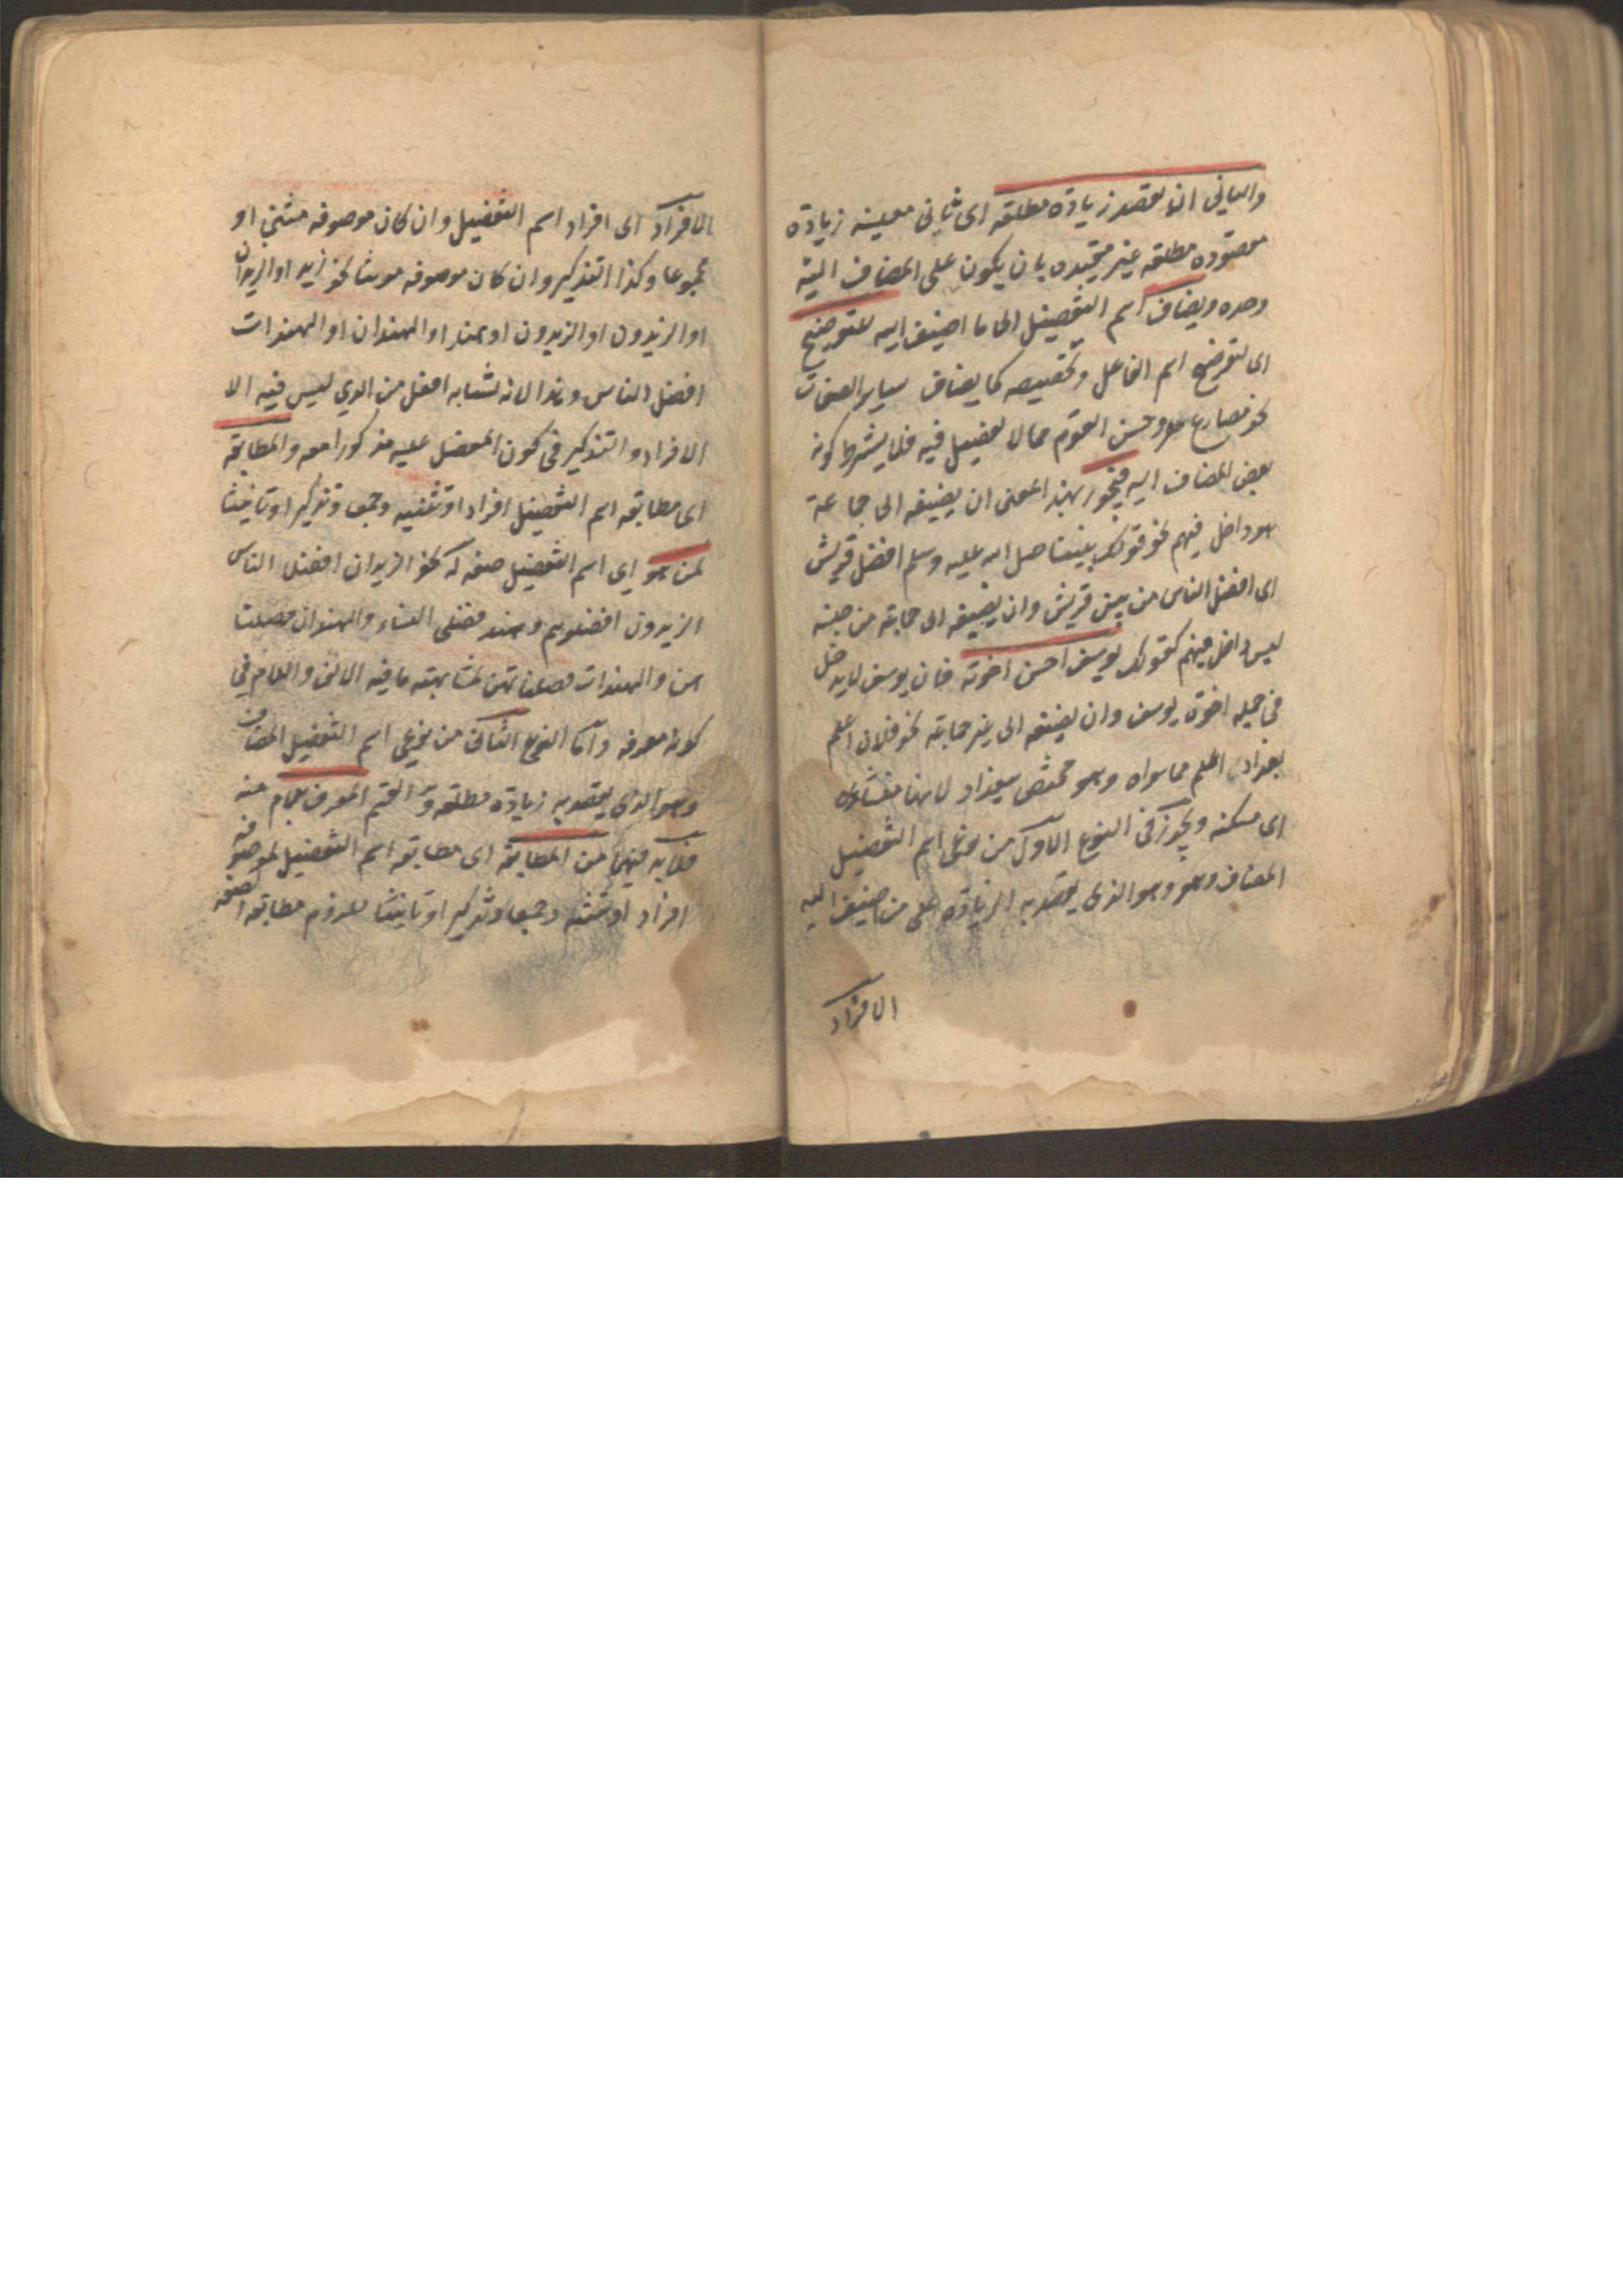 والثاني ان يقصد زيادة مطلقة اى ثانى معنييه زيادة
مقصودة مطلقة غير مقيدة بان يكون على المضاف اليه
وحده ويضاف اسم التفضيل الى ما اضيف اليه للتوضيح
اى لتوضيح اسم الفاعل وتخصيصه كما يضاف سائر الصفات
نحو مصارع وحسن القوم مما لا تفضيل فيه فلا يشترط كونه
بعض المضاف اليه فيجوز بهذا المعنى ان يضيفه الى جماعة
هو داخل فيهم نحو قولك نبينا صلى الله عليه وسلم افضل قريش
اى افضل الناس من بين قريش وان يضيفه الى جماعة من جنسه
ليس داخل فيهم كقولك يوسف احسن اخوته فان يوسف لا يدخل
فى جملة اخوة يوسف وان يضيفه الى غير جماعة نحو فلان اعلم
بغداد اى اعلم مما سواه وهو مختص ببغداد لانها منشاؤه
اى مسكنه ويجوز فى النوع الاول من نوعى اسم التفضيل
المضاف وهو وهو الذى يقصد به الزيادة على من اضيف اليه
الافراد
الافراد اى افراد اسم التفضيل وان كان موصوفه مثنى او
مجموعا وكذا التذكير وان كان موصوفه مونثا نحو زيد او الزيدان
او الزيدون او الزيدون او هند او الهندان او الهندات
افضل الناس وهذا لانه تشابه افعل من الذي ليس فيه الا
الافراد والتذكير فى كون المفضل عليه مذكورا معه والمطابقة
اى مطابقة اسم التفضيل افرادا وتثنية وجمعا وتذكيرا وتانيثا
لمن هو اي اسم التفضيل صفة له نحو الزيدان افضلا الناس
الزيدون افضلوهم وهند فضلى النساء والهندان فضليا
هن والهندات فضلياتهن لمشابهته ما فيه الالف واللام في
كونه معرفة واما النوع الثانى من نوعى اسم التفضيل المضاف
وهو الذى يقصد به زيادة مطلقة والقسم المعرف باللام منه
فلا بد فيهما من المطابقة اى مطابقة اسم التفضيل لموصوفه
افرادا وتثنية وجمعا وتذكيرا وتانيثا للزوم مطابقة الصفة